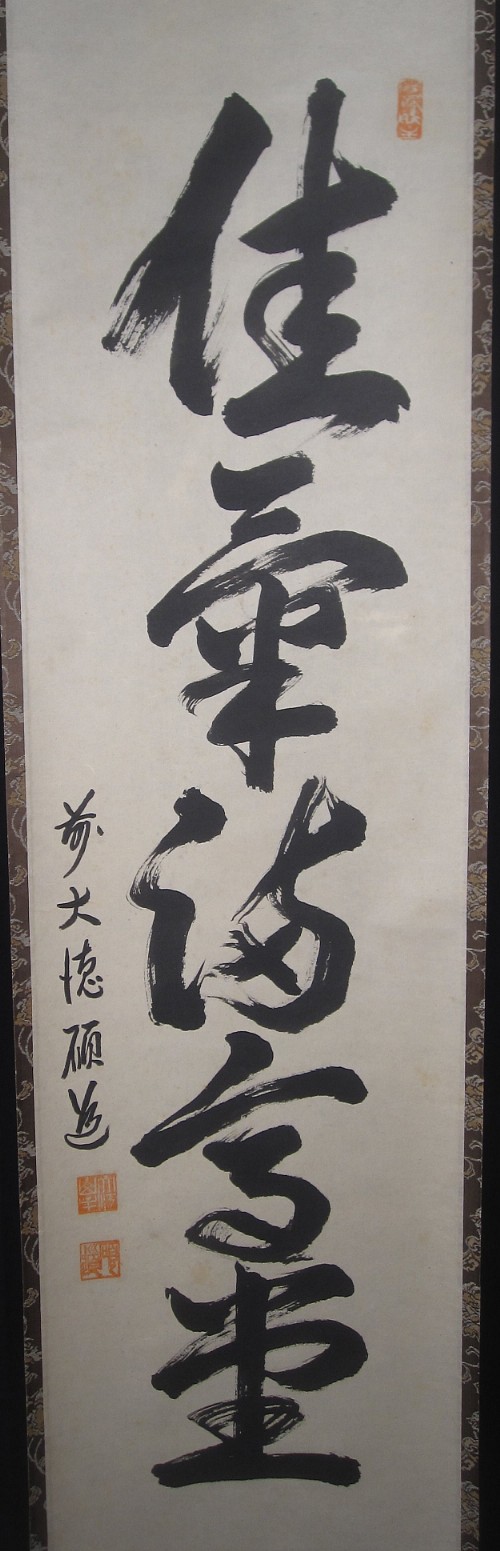 佳氣満高堂
前大徳碩道